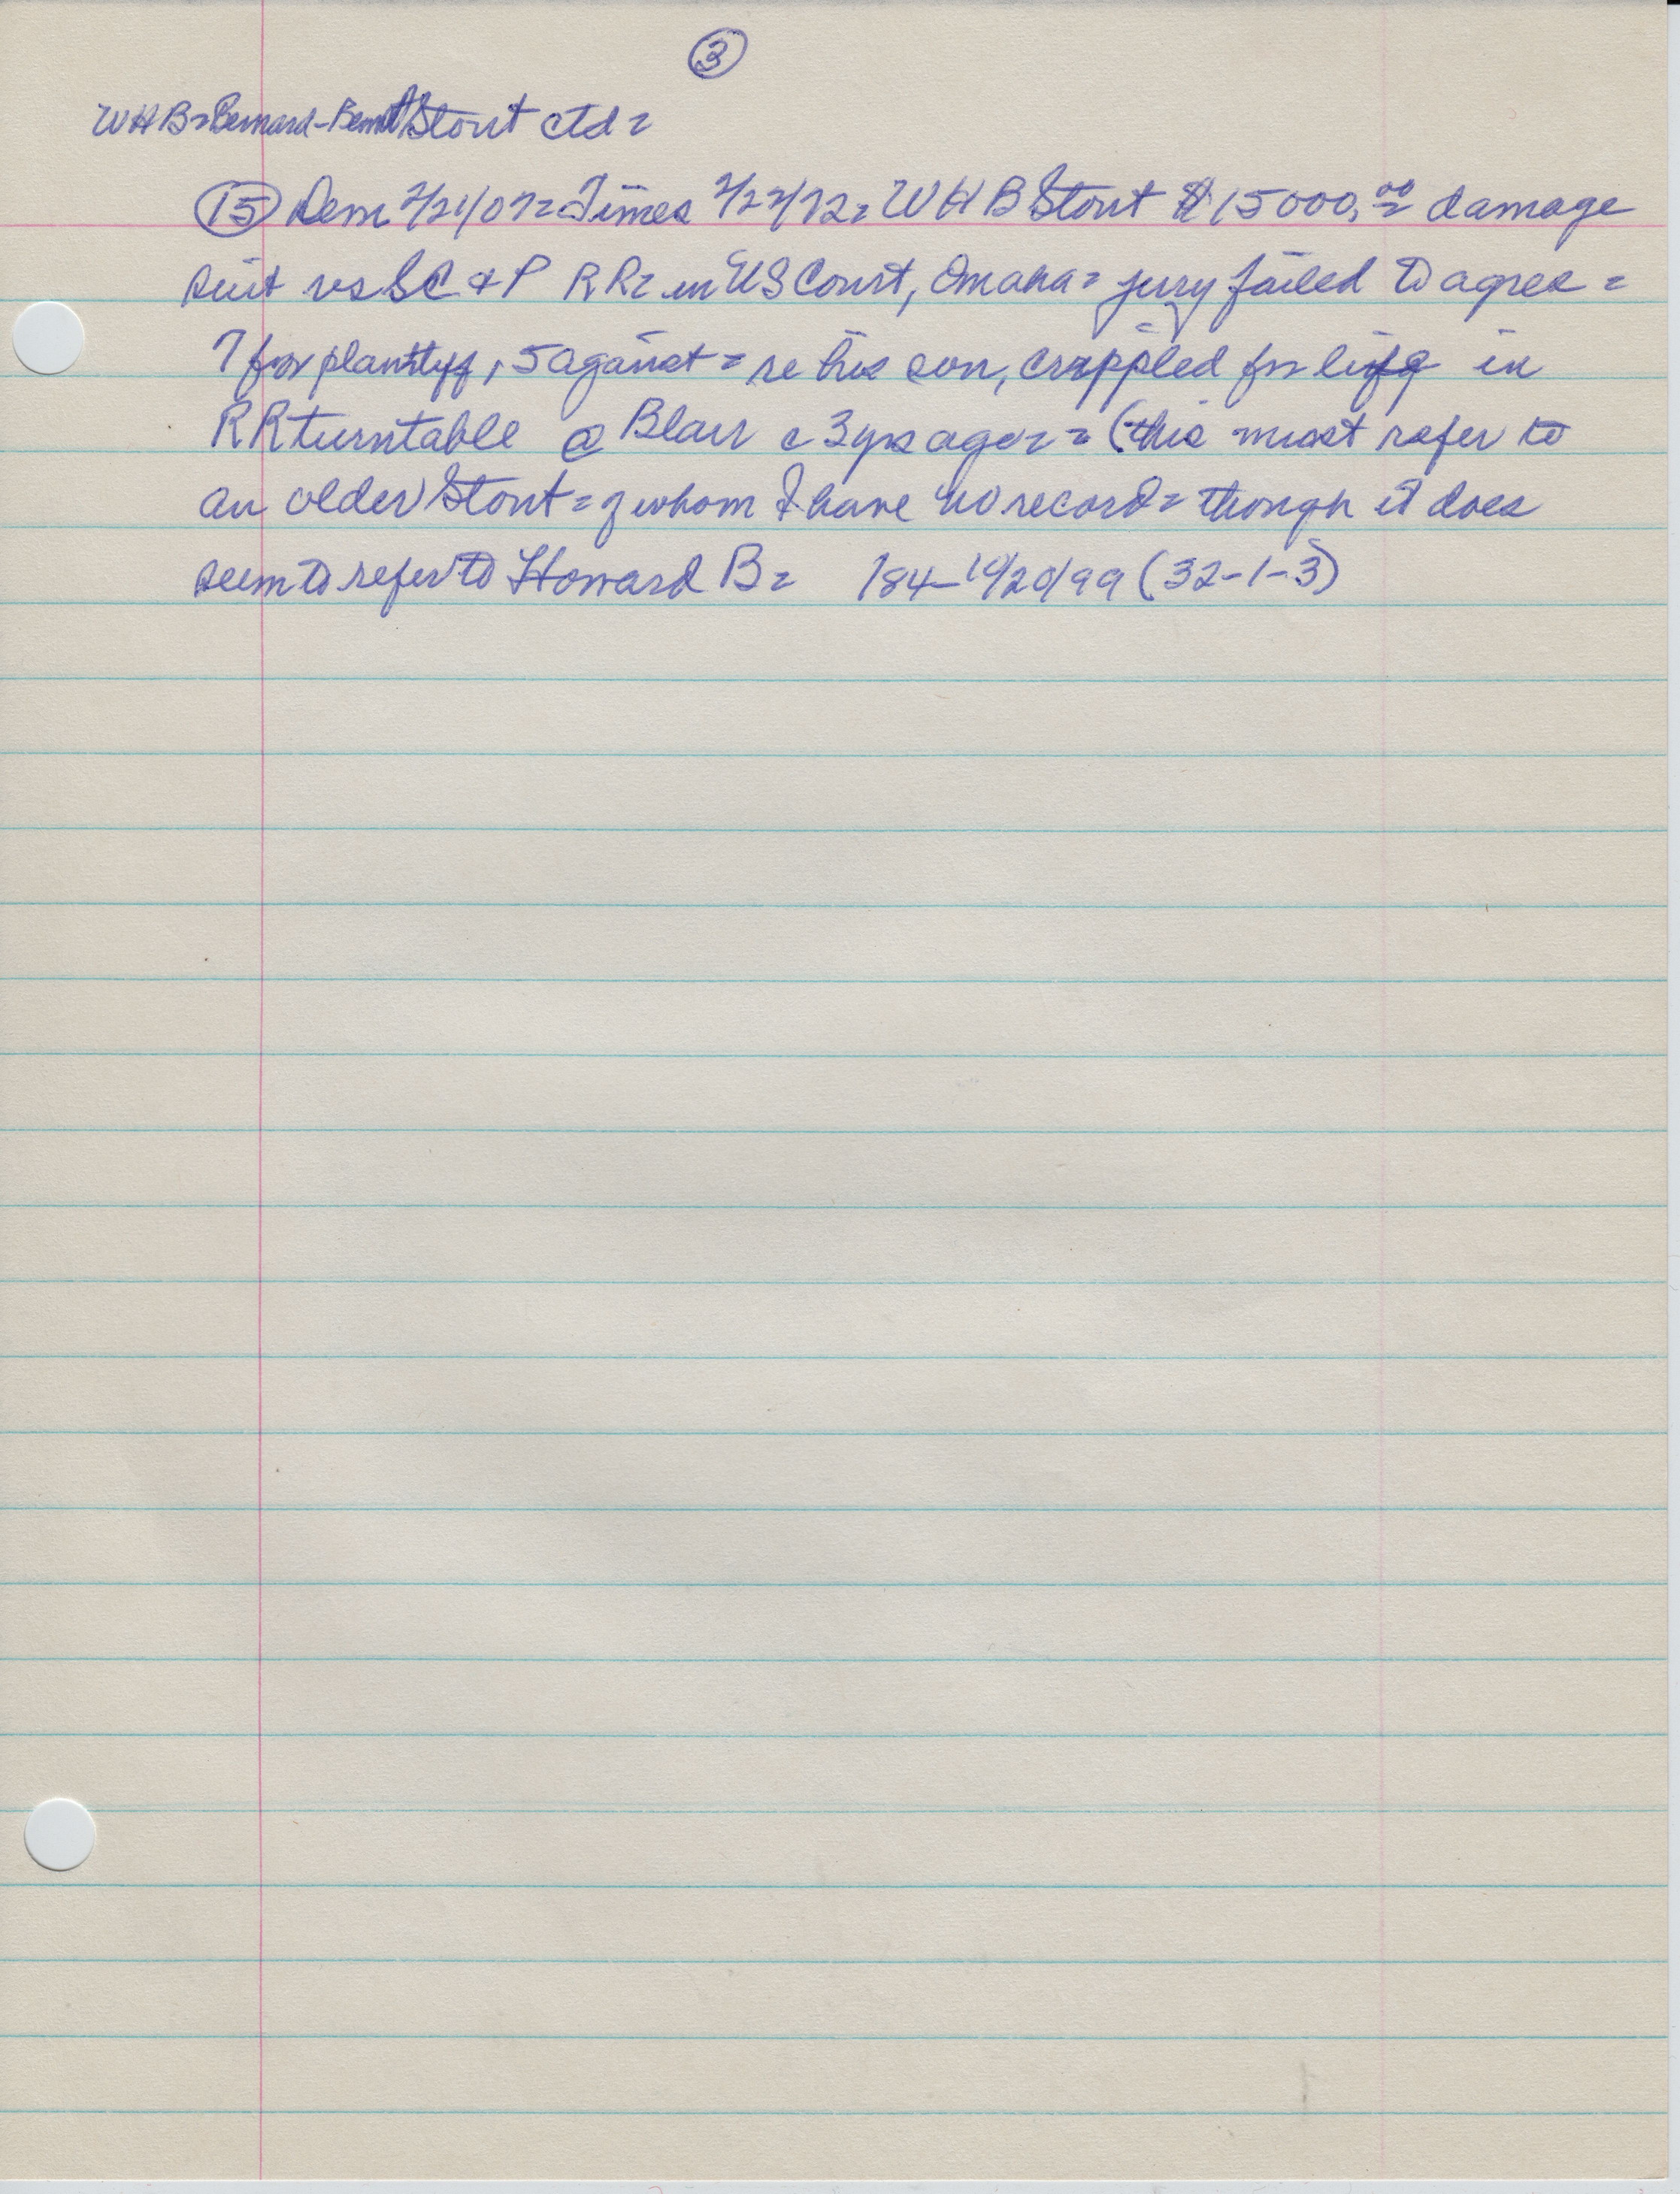 ③
WHB=Bernard-Bennett Stout ctd=
⑮ Dem 2/21/07=Times 2/22/72= WHB Stout $15000.00 damage
suit vs SC & P RR= in US Court, Omaha= jury failed to agree=
7 for plaintyff, 5 against= re his son, crippled for life in
RR turntable @ Blair c 3 yrs ago== (this must refer to
an older Stout= of whom I have no record= though it does
seem to refer to Howard B= 184-10/20/99 (32-1-3)